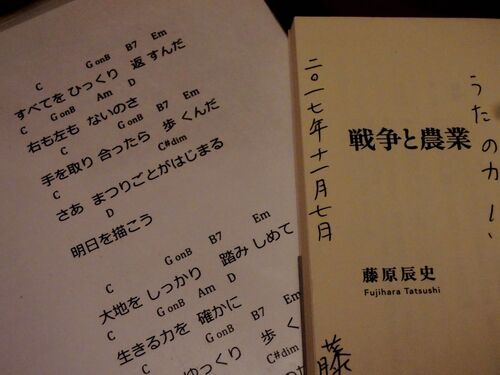 C GonB B7 Em
すべてを ひっくり 返 すんだ
C GonB Am D
右も左も ないのさ
C GonB B7 Em
手を取り 合ったら 歩 くんだ
C C#dim
さあ まつりごとがはじまる
D
明日を描こう
C GonB B7 Em
大地を しっかり 踏み しめて
C GonB Am D
生きる力を 確かに
C GonB B7 Em
ゆっくり 歩 く
C#dim
二〇一七年十一月七日
うたのカー
戦争と農業
藤原辰史
Fujihara Tatsushi
藤